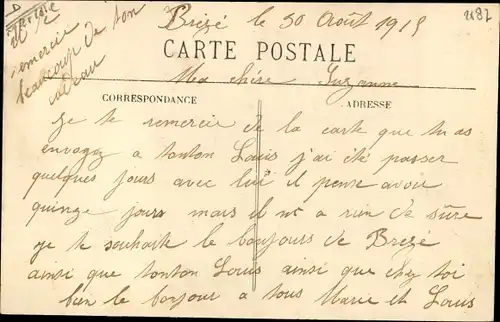 Brézé le 30 Août 1915
2187
remercie
beaucoup de ton
cadeau
CARTE POSTALE
Ma chère Suzanne
CORRESPONDANCE
ADRESSE
Je te remercie de la carte que tu as
envoyez a tonton Louis j'ai été passer
quelques jours avec lui il pense avoir
quinze jours mais il n'a rien de sûre
je te souhaite le bonjours de Brézé
ainsi que tonton Louis ainsi que chez toi
bien le bonjour a tous Marie et Louis